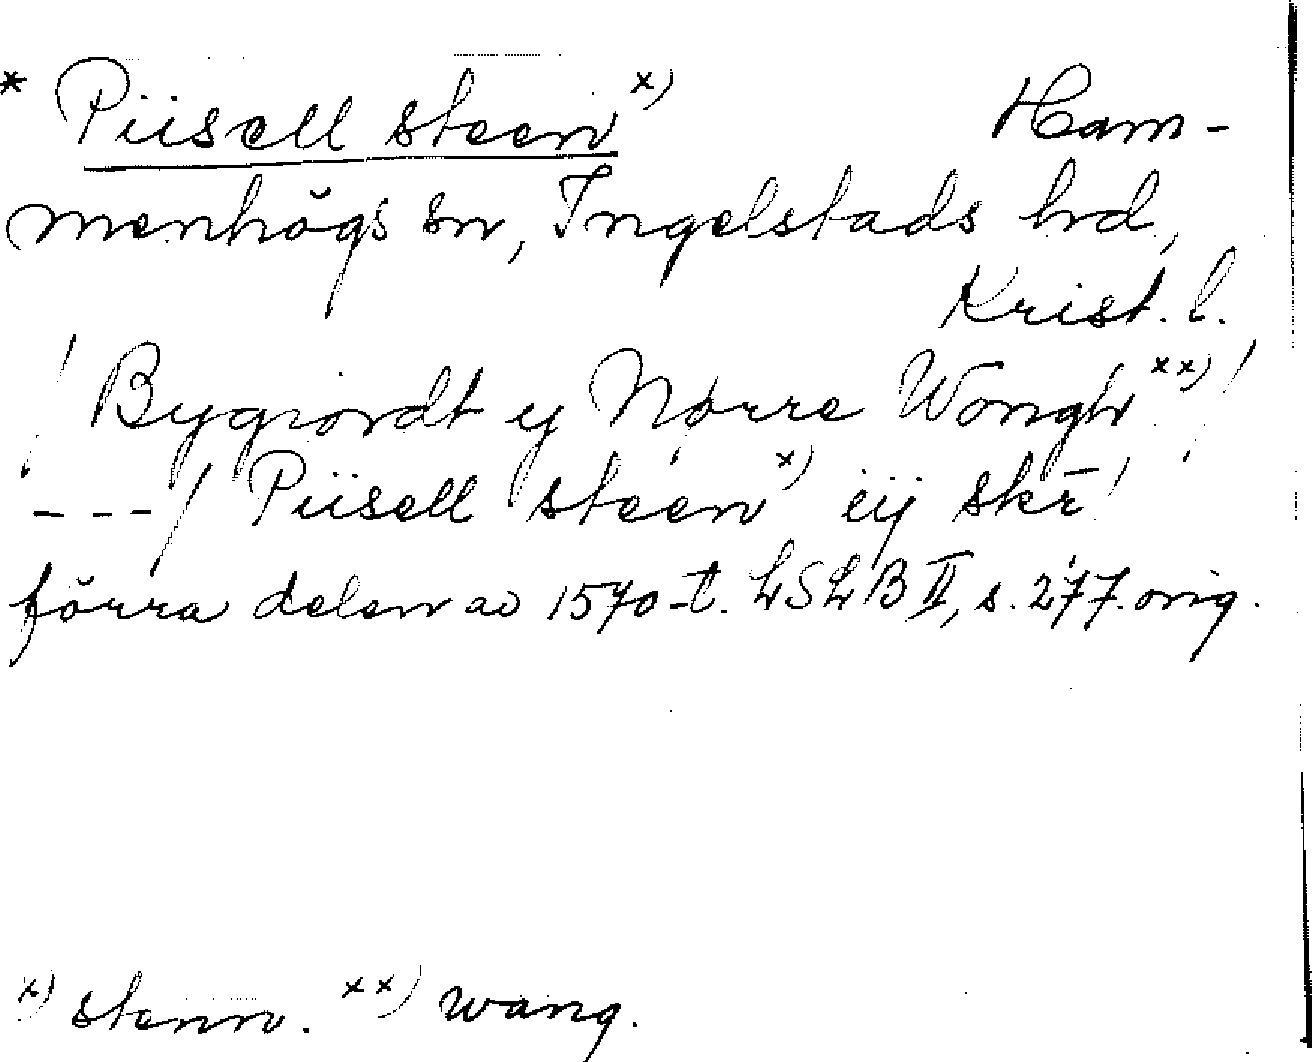 * Piisell steen x) Ham-
menhögs sn, Ingelstads hd,
Krist. l.
/ Bygnordt y Nørre Wongh xx) /
---/ Piisell steen x) eij skr
förra delen av 1570-t. LSLB II, s. 277. orig.
x) stenn. xx) wang.